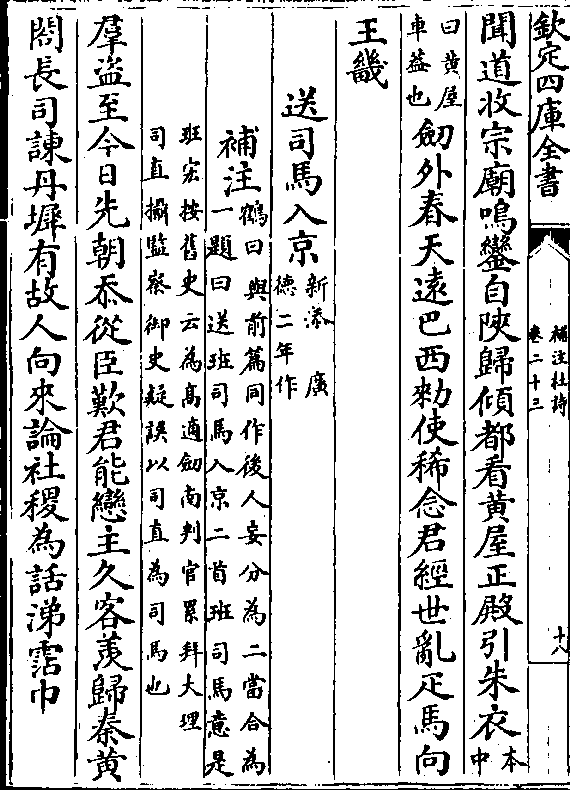 欽定四庫全書
補注杜詩
卷二十三
十八
聞道收宗廟鳴鑾自陜歸傾都看黃屋正殿引朱衣本
中
曰黃屋
車葢也劒外春天遠巴西勑使稀念君經世亂疋馬向
王畿
送司馬入京新添 廣
德二年作
補注鶴曰與前篇同作後人妄分為二當合為
一題曰送班司馬入京二首班司馬意是
班宏按舊史云為髙適劒南判官累拜大理
司直攝監察御史疑誤以司直為司馬也
羣盗至今日先朝忝從臣歎君能戀主久客羨歸秦黄
閤長司諫丹墀有故人向來論社稷為話涕霑巾